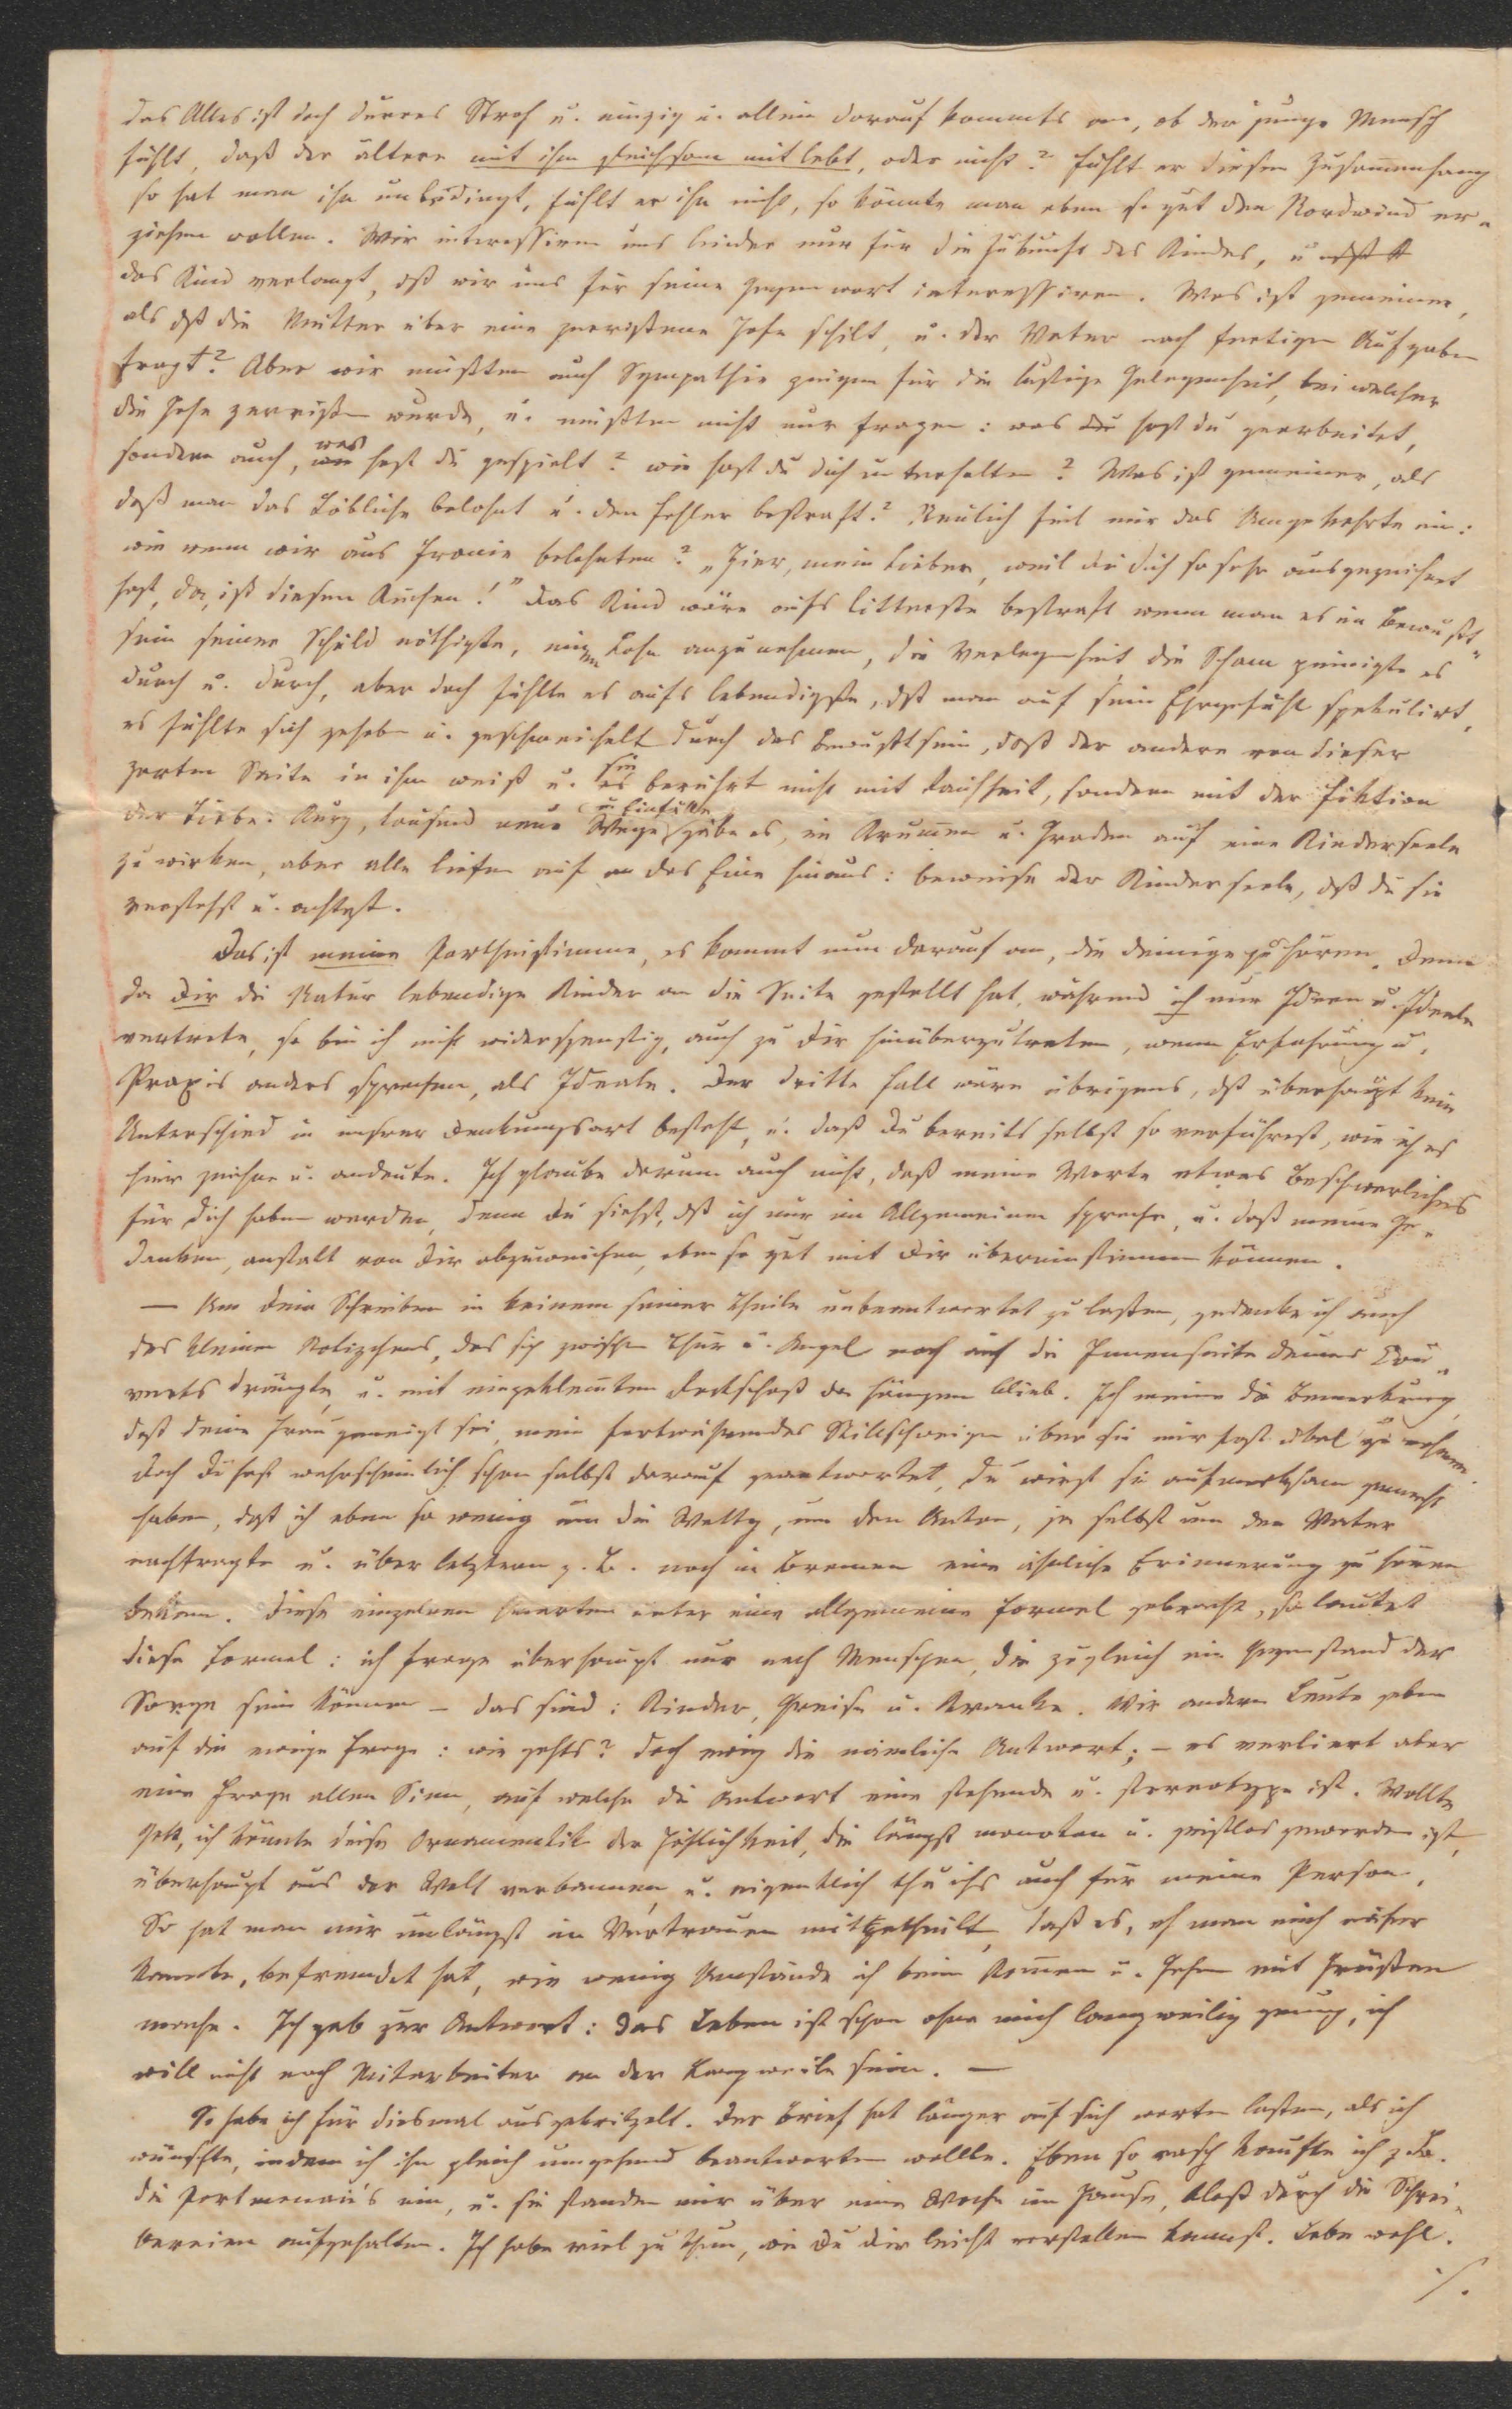 das Alles ist doch dürres Stroh u. einzig u. allein darauf kommts an, ob der junge Mensch
fühlt, daß der ältere mit ihm gleichsam mit lebt, oder nicht? Fühlt er diesen Zusam̅enhang
so hat man ihn unbedingt, fühlt er ihn nicht, so könnte man eben so gut den Nordwind er-
ziehen wollen. Wir interessiren uns leider nur für die Zukunft des Kindes, u
das Kind verlangt, dß wir uns für seine Gegenwart interessiren. Was ist gemeiner,
als dß die Mutter über eine zerrißene Hose schilt, u. der Vater nach fertigen Aufgaben
fragt? Aber wir müßten auch Sympathie zeigen für die lustige Gelegenheit, bei welcher
die Hose zerrißen wurde, u. müßten nicht nur fragen: was hast du gearbeitet,
sondern auch, was hast du gespielt? wie hast du dich unterhalten? Was ist gemeiner, als
daß man das Löbliche belohnt u. den Fehler bestraft? Neulich fiel mir das Umgekehrte ein:
wie wenn wir aus Ironie belohnten? „Hier, mein Lieber, weil du dich so sehr ausgezeichnet
hast, da, iß diesen Kuchen!" Das Kind wäre aufs bitterste bestraft wenn man es im Bewußt-
sein seiner Schuld nöthigte, einen Lohn anzunehmen, die Verlegenheit die Scham peinigte es
durch u. durch, aber doch fühlte es aufs lebendigste, dß man auf sein Ehrgefühl spekulirt,
es fühlte sich gehoben u. geschmeichelt durch das Bewußtsein, daß der andere von dieser
zarten Seite in ihm weiß u. sie berührt nicht mit Rauhheit, sondern mit der Fiktion
der Liebe. Kurz, tausend neue Wege u Einfälle gäbe es, im Krum̅en u. Graden auf eine Kinderseele
zu wirken, aber alle liefen auf das Eine hinaus: beweise der Kinderseele, dß du sie
verstehst u. achtest.
Das ist meine Partheistimme, es kommt nun darauf an, die deinige zu hören. Denn
da Dir die Natur lebendige Kinder an die Seite gestellt hat, während ich nur Ideen u. Ideale
vertrete, so bin ich nicht widerspenstig, auch zu Dir hinüberzutreten, wenn Erfahrung u.
Praxis anders sprechen, als Ideale. Der dritte Fall wäre übrigens, dß überhaupt kein
Unterschied in unsrer Denkungsart besteht, u. daß Du bereits selbst so verführest, wie ich es
hier zeichne u. andeute. Ich glaube darum auch nicht, daß meine Worte etwas Beschwerliches
für Dich haben werden, denn Du siehst, dß ich nur im Allgemeinen spreche, u. daß meine Ge-
danken, anstatt von Dir abzuweichen, eben so gut mit Dir übereinstimmen können.
— Um Dein Schreiben in keinem seiner Theile unbeantwortet zu laßen, gedenke ich auch
des kleinen Notizchens, das sich zwischen Thür u. Angel noch auf die Innenseite deines Cou-
verts drängte, u. mit eingeklem̅ten Rockschoß da hängen blieb. Ich meine die Bemerkung,
daß deine Frau geneigt sei, mein fortwährendes Stillschweigen über sie mir fast übel zu nehmen.
Doch Du hast wahrscheinlich schon selbst darauf geantwortet, Du wirst sie aufmerksam gemacht
haben, daß ich eben so wenig um die Wetty, um den Anton, ja selbst um den Vater
nachfragte u. über letztern z. B. noch in Bremen eine ähnliche Erinnerung zu hören
bekam. Diese einzelnen unter eine allgemeine Formel gebracht, so lautet
diese Formel: ich frage überhaupt nur nach Menschen, die zugleich ein Gegenstand der
Sorge sein können – das sind: Kinder, Greise u. Kranke. Wir andern Leute geben
auf die ewige Frage: wie gehts? doch ewig die nämliche Antwort; – es verliert aber
eine Frage allen Sinn, auf welche die Antwort eine stehende u. stereotype ist. Wollte
Gott, ich könnte diese Ornamentik der Höflichkeit, die längst monoton u. geistlos geworden ist,
überhaupt aus der Welt verbannen u. eigentlich thu ichs auch für meine Person.
So hat man mir unlängst im Vertrauen mitgetheilt, daß es, eh man mich näher
kannte, befremdet hat, wie wenig Umstände ich beim Kom̅en u. Gehen mit Grüßen
mache. Ich gab zur Antwort: das Leben ist schon ohne mich langweilig genug, ich
will nicht noch Mitarbeiter an der Langweile sein. —
So habe ich für diesmal ausgekritzelt. Der Brief hat länger auf sich warten laßen, als ich
wünschte, indem ich ihn gleich umgehend beantworten wollte. Eben so rasch kaufte ich z. B.
die Portmonai's ein, u. sie standen mir über eine Woche im Hause, bloß durch die Schrei-
bereien aufgehalten. Ich habe viel zu thun, wie Du dir leicht vorstellen kannst. Lebe wohl.
./.